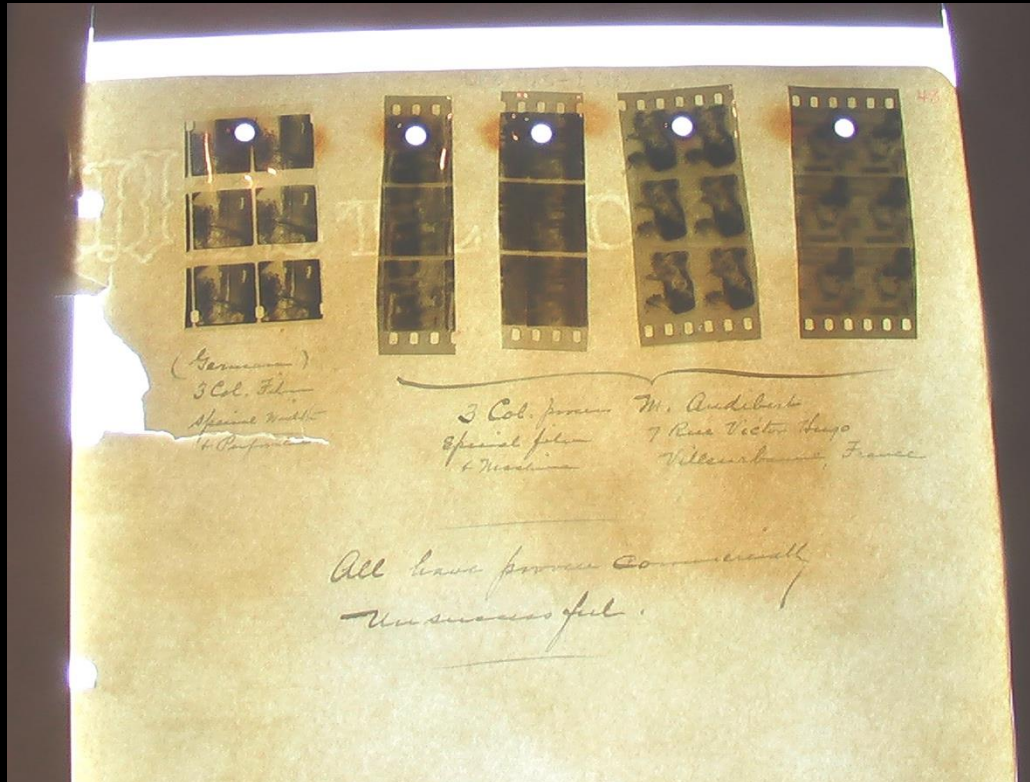 48
(German)
3 Col. Film
Special Width
& Perforation
3 Col. process
Special film
& Machine
M. Audibert
7 Rue Victor Hugo
Villeurbanne, France
All have proven commercially
Unsuccessful.